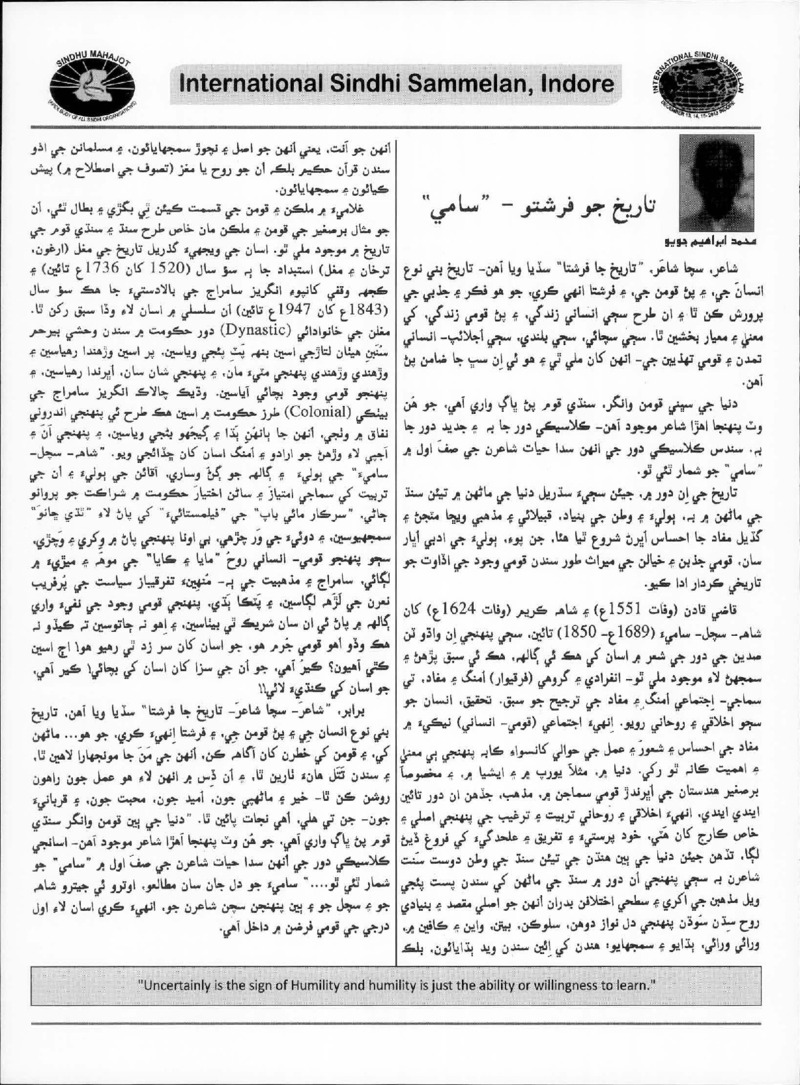 SINDHU MAHAJOT
International Sindhi Sammelan, Indore
INTERNATIONAL SINDHI SAMMELAN
DECEMBER 13, 14, 15 - 2013 INDORE
محمد ابراهيم جويو
تاريخ جو فرشتو - "سامي"
شاعر، سچا شاعر، "تاريخ جا فرشتا" سڏيا ويا آهن- تاريخ بني نوع
انسان جي، ۽ پڻ قومن جي، ۽ فرشتا انهي ڪري، جو هو فڪر ۽ جذبي جي
پرورش ڪن ٿا ۽ ان طرح سڄي انساني زندگي، ۽ پڻ قومي زندگي، کي
معنيٰ ۽ معيار بخشين ٿا. سڄي سچائي، سڄي بلندي، سڄي اجلائپ- انساني
تمدن ۽ قومي تهذيبن جي- انهن کان ملي ٿي ۽ هو ئي اِن سڀ جا ضامن پڻ
آهن.
دنيا جي سڀني قومن وانگر، سنڌي قوم پڻ ڀاڳ واري آهي، جو هُن
وٽ پنهنجا اهڙا شاعر موجود آهن- ڪلاسيڪي دور جا به ۽ جديد دور جا
به. سندس ڪلاسيڪي دور جي انهن سدا حيات شاعرن جي صفِ اول ۾
"سامي" جو شمار ٿئي ٿو.
تاريخ جي اِن دور ۾، جيئن سڄيءَ سڌريل دنيا جي ماڻهن ۾ تيئن سنڌ
جي ماڻهن ۾ به، ٻوليءَ ۽ وطن جي بنياد، قبيلائي ۽ مذهبي ويڇا مٽجڻ ۽
گڏيل مفاد جا احساس اُڀرڻ شروع ٿيا هئا، جن پوءِ، ٻوليءَ جي ادبي اُڀار
سان، قومي جذبن ۽ خيالن جي ميراث طور سندن قومي وجود جي اڏاوت جو
تاريخي ڪردار ادا ڪيو.
قاضي قادن (وفات 1551ع) ۽ شاهه ڪريم (وفات 1624ع) کان
شاهه- سچل- ساميءَ (1689ع- 1850) تائين، سڄي پنهنجي اِن واڌو ٽن
صدين جي دور جي شعر ۾ اسان کي هڪ ئي ڳالهه، هڪ ئي سبق پڙهڻ ۽
سمجهڻ لاءِ موجود ملي ٿو- انفرادي ۽ گروهي (فرقيوار) اُمنگ ۽ مفاد، تي
سماجي- اِجتماعي اُمنگ ۽ مفاد جي ترجيح جو سبق. تحقيق، انسان جو
سچو اخلاقي ۽ روحاني رويو. اِنهيءَ اجتماعي (قومي- انساني) نيڪيءَ ۾
مفاد جي احساس ۽ شعورَ ۽ عمل جي حوالي کانسواءِ ڪابه پنهنجي ٻي معنيٰ
۽ اهميت ڪانه ٿو رکي. دنيا ۾، مثلاً يورپ ۾ ۽ ايشيا ۾، ۽ مخصوصاً
برصغير هندستان جي اُڀرندڙ قومي سماجن ۾، مذهب، جڏهن ان دور تائين
ايندي ايندي، انهيءَ اخلاقي ۽ روحاني تربيت ۽ ترغيب جي پنهنجي اصلي ۽
خاص ڪارج کان هٽي، خود پرستيءَ ۽ تفريق ۽ علحدگيءَ کي فروغ ڏيڻ
لڳا، تڏهن جيئن دنيا جي ٻين هنڌن جي تيئن سنڌ جي وطن دوست سَنت
شاعرن به سڄي پنهنجي اُن دور ۾ سنڌ جي ماڻهن کي سندن پست پئجي
ويل مذهبن جي اکري ۽ سطحي اختلافن بدران اُنهن جو اصلي مقصد ۽ بنيادي
روح سِڌن سئوڌن پنهنجي دل نواز دوهن، سلوڪن، بيتن، واين ۽ ڪافين ۾،
ورائي ورائي، ٻڌايو ۽ سمجهايو: هندن کي اِئين سندن ويد ٻڌايائون، بلڪ
اُنهن جو اُنت، يعني اُنهن جو اصل ۽ نچوڙ سمجهايائون، ۽ مسلمانن جي اڳو
سندن قرآن حڪيم بلڪه اُن جو روح يا مغز (تصوف جي اصطلاح ۾) پيش
ڪيائون ۽ سمجهايائون.
غلاميءَ ۾ ملڪن ۽ قومن جي قسمت ڪيئن ٿي بگڙي ۽ بطال ٿئي، اُن
جو مثال برصغير جي قومن ۽ ملڪن مان خاص طرح سنڌ ۽ سنڌي قوم جي
تاريخ ۾ موجود ملي ٿو. اسان جي ويجهيءَ گذريل تاريخ جي مغل (ارغون،
ترخان ۽ مغل) استبداد جا ٻه سؤ سال (1520 کان 1736ع تائين) ۽
ڪجهه وقفي کانپوءِ انگريز سامراج جي بالادستيءَ جا هڪ سؤ سال
(1843ع کان 1947ع تائين) اُن سلسلي ۾ اسان لاءِ وڏا سبق رکن ٿا.
مغلن جي خانوادائي (Dynastic) دور حڪومت ۾ سندن وحشي بيرحم
سُنبَن هيٺان لتاڙجي اسين بنهه پَٽِ پئجي وياسين، پر اسين وڙهندا رهياسين ۽
وڙهندي وڙهندي پنهنجي مٽيءَ مان، ۽ پنهنجي شان سان، اُڀرندا رهياسين، ۽
پنهنجو قومي وجود بچائي آياسين. وڌيڪ چالاڪ انگريز سامراج جي
بيٺڪي (Colonial) طرز حڪومت ۾ اسين هڪ طرح ئي پنهنجي اندروني
نفاق ۾ وٺجي، اُنهن جا ٻانهَن ٻَڌا ۽ ڳيجهُو بڻجي وياسين، ۽ پنهنجي آنَ ۽
اَجي لاءِ وڙهڻ جو ارادو ۽ اُمنگ اسان کان ڇڏائجي ويو. "شاهه- سچل-
ساميءَ" جي ٻوليءَ ۽ ڳالهه جو ڳُڻ وساري، آقائن جي ٻوليءَ ۽ اُن جي
تربيت کي سماجي امتياز ۽ ساڻن اختيار حڪومت ۾ شراڪت جو پروانو
ڄاڻي، "سرڪار مائي باپ" جي "فيلمستائيءَ" کي پاڻ لاءِ "ٿڌي ڇانوَ"
سمجهيوسين، ۽ دوئيءَ جي وَر چڙهي، بي اونا پنهنجي پاڻ ۾ وِکري ۽ وَڇڙي،
سڄو پنهنجو قومي- انساني روحُ "مايا ۽ ڪايا" جي موهه ۽ ميڙيءَ ۾
لڳائي، سامراج ۽ مذهبيت جي ٻه- مُنهينءَ تفرقيباز سياست جي پُرفريب
نعرن جي لَڙهه لڳاسين، ۽ پَٽڪا ٻَڌي، پنهنجي قومي وجود جي نفيءَ واري
ڳالهه ۾ پاڻ ئي ان سان شريڪ ٿي بيٺاسين، ۽ اِهو نه ڄاتوسين ته ڪيڏو نه
هڪ وڏو اُهو قومي جُرم هو، جو اسان کان سر زد ٿي رهيو هو! اڄ اسين
ڪٿي آهيون؟ ڪيرَ آهي، جو اُن جي سزا کان اسان کي بچائي! ڪير آهي،
جو اسان کي ڪنڌيءَ لائي!!
برابر، "شاعرَ- سچا شاعرَ- تاريخ جا فرشتا" سڏيا ويا آهن، تاريخ
بني نوع انسان جي ۽ پڻ قومن جي، ۽ فرشتا اِنهيءَ ڪري، جو هو... ماڻهن
کي، ۽ قومن کي خطرن کان آگاهه ڪن، اُنهن جي مَنَ جا مونجهارا لاهين ٿا،
۽ سندن ڪُنڌل هانءَ ٺارين ٿا، ۽ اُن ڏِس ۾ انهن لاءِ هو عمل جون راهون
روشن ڪن ٿا- خير ۽ ماڻهپي جون، اُميد جون، محبت جون، ۽ قربانيءَ
جون- جن تي هلي، اُهي نجات پائين ٿا. "دنيا جي ٻين قومن وانگر سنڌي
قوم پڻ ڀاڳ واري آهي، جو هُن وٽ پنهنجا اَهڙا شاعر موجود آهن- اسانجي
ڪلاسيڪي دور جي اُنهن سدا حيات شاعرن جي صفِ اول ۾ "سامي" جو
شمار ٿئي ٿو...." ساميءَ جو دل جان سان مطالعو، اوترو ئي جيترو شاهه
جو ۽ سچل جو ۽ ٻين پنهنجن سچن شاعرن جو، انهيءَ ڪري اسان لاءِ اول
درجي جي قومي فرضن ۾ داخل آهي.
"Uncertainly is the sign of Humility and humility is just the ability or willingness to learn."